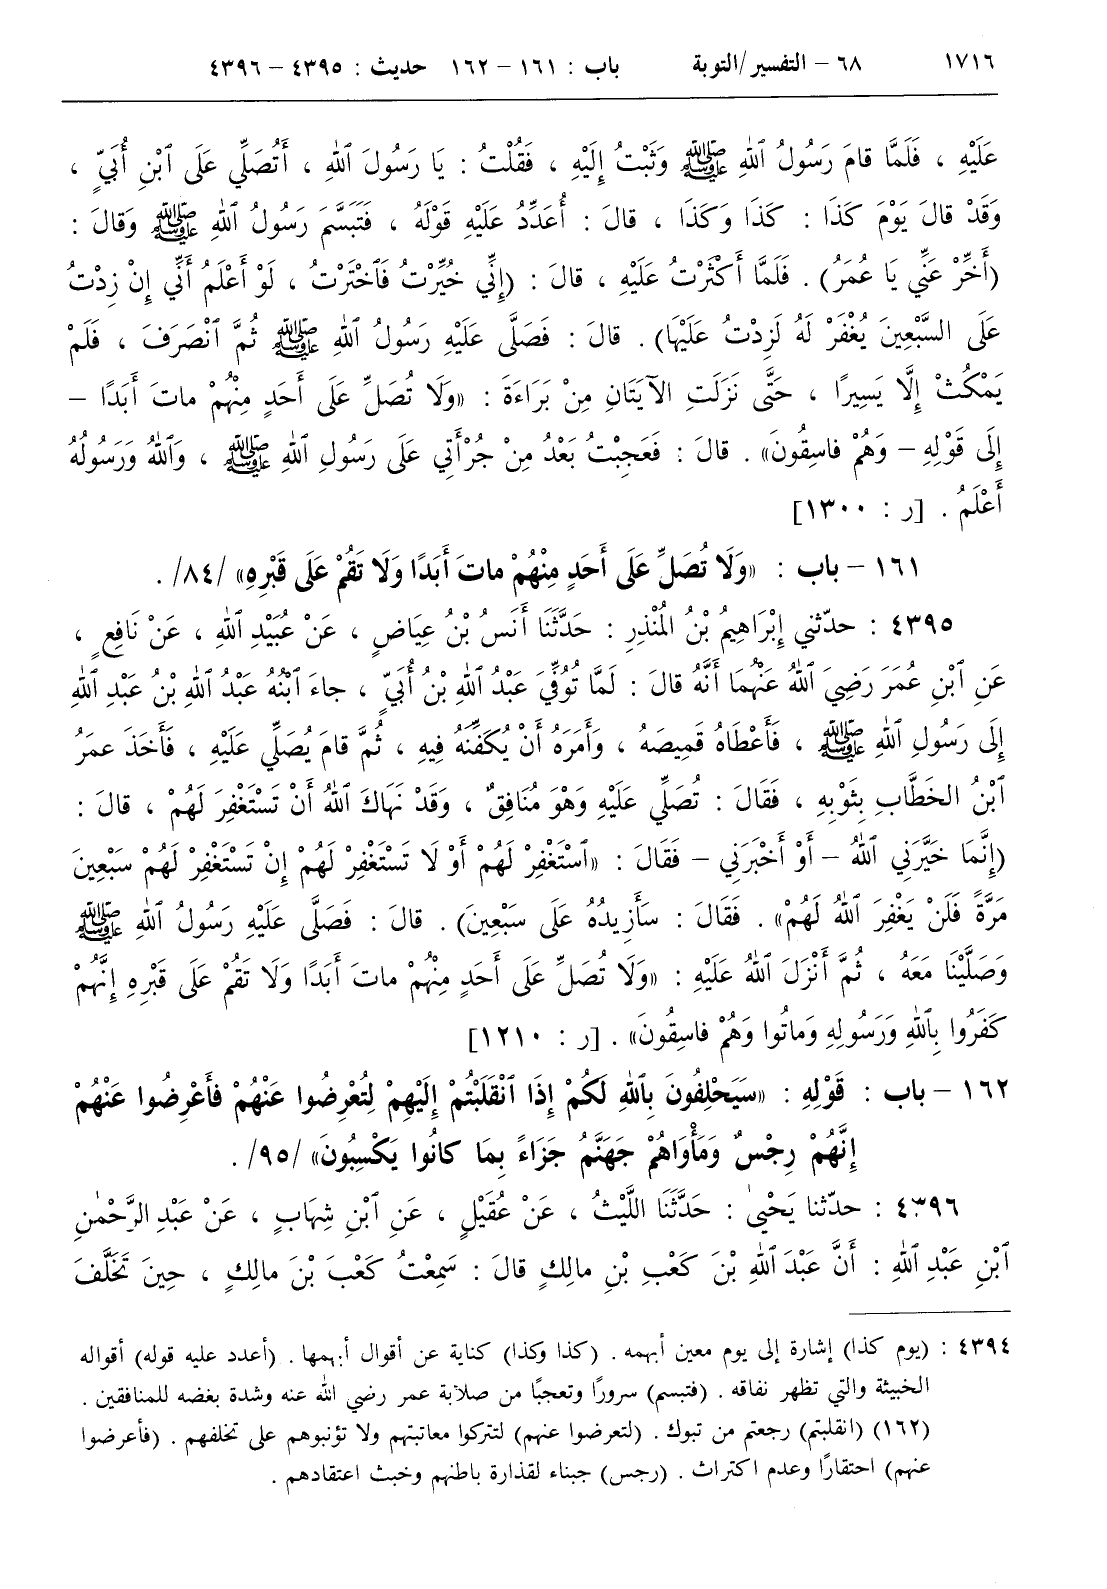 ١٧١٦ ٦٨ - التفسير/التوبة باب : ١٦١ - ١٦٢ حديث : ٤٣٩٥ - ٤٣٩٦
عَلَيْهِ ، فَلَمَّا قامَ رَسُولُ ٱللهِ ﷺ وَثَبْتُ إِلَيْهِ ، فَقُلْتُ : يَا رَسُولَ ٱللهِ ، أَتُصَلِّي عَلَى ٱبْنِ أُبَيٍّ ،
وَقَدْ قالَ يَوْمَ كَذَا : كَذَا وَكَذَا ، قالَ : أُعَدِّدُ عَلَيْهِ قَوْلَهُ ، فَتَبَسَّمَ رَسُولُ ٱللهِ ﷺ وَقالَ :
(أَخِّرْ عَنِّي يَا عُمَرُ) . فَلَمَّا أَكْثَرْتُ عَلَيْهِ ، قالَ : (إِنِّي خُيِّرْتُ فَٱخْتَرْتُ ، لَوْ أَعْلَمُ أَنِّي إِنْ زِدْتُ
عَلَى السَّبْعِينَ يُغْفَرْ لَهُ لَزِدْتُ عَلَيْهَا) . قالَ : فَصَلَّى عَلَيْهِ رَسُولُ ٱللهِ ﷺ ثُمَّ ٱنْصَرَفَ ، فَلَمْ
يَمْكُثْ إِلَّا يَسِيرًا ، حَتَّى نَزَلَتِ الآيَتَانِ مِنْ بَرَاءَةَ : «وَلَا تُصَلِّ عَلَى أَحَدٍ مِنْهُمْ ماتَ أَبَدًا -
إِلَى قَوْلِهِ - وَهُمْ فاسِقُونَ» . قالَ : فَعَجِبْتُ بَعْدُ مِنْ جُرْأَتِي عَلَى رَسُولِ ٱللهِ ﷺ ، وَٱللهُ وَرَسُولُهُ
أَعْلَمُ . [ر : ١٣٠٠]
١٦١ - باب : «وَلَا تُصَلِّ عَلَى أَحَدٍ مِنْهُمْ ماتَ أَبَدًا وَلَا تَقُمْ عَلَى قَبْرِهِ» /٨٤/ .
٤٣٩٥ : حدّثني إِبْرَاهِيمُ بْنُ المُنْذِرِ : حَدَّثَنَا أَنَسُ بْنُ عِيَاضٍ ، عَنْ عُبَيْدِ ٱللهِ ، عَنْ نَافِعٍ ،
عَنِ ٱبْنِ عُمَرَ رَضِيَ ٱللهُ عَنْهُمَا أَنَّهُ قالَ : لَمَّا تُوُفِّيَ عَبْدُ ٱللهِ بْنُ أُبَيٍّ ، جاءَ ٱبْنُهُ عَبْدُ ٱللهِ بْنُ عَبْدِ ٱللهِ
إِلَى رَسُولِ ٱللهِ ﷺ ، فَأَعْطَاهُ قَمِيصَهُ ، وَأَمَرَهُ أَنْ يُكَفِّنَهُ فِيهِ ، ثُمَّ قامَ يُصَلِّي عَلَيْهِ ، فَأَخَذَ عمَرُ
ٱبْنُ الخَطَّابِ بِثَوْبِهِ ، فَقَالَ : تُصَلِّي عَلَيْهِ وَهْوَ مُنَافِقٌ ، وَقَدْ نَهَاكَ ٱللهُ أَنْ تَسْتَغْفِرَ لَهُمْ ، قالَ :
(إِنَّمَا خَيَّرَنِي ٱللهُ - أَوْ أَخْبَرَنِي - فَقَالَ : «ٱسْتَغْفِرْ لَهُمْ أَوْ لَا تَسْتَغْفِرْ لَهُمْ إِنْ تَسْتَغْفِرْ لَهُمْ سَبْعِينَ
مَرَّةً فَلَنْ يَغْفِرَ ٱللهُ لَهُمْ» . فَقَالَ : سَأَزِيدُهُ عَلَى سَبْعِينَ) . قالَ : فَصَلَّى عَلَيْهِ رَسُولُ ٱللهِ ﷺ
وَصَلَّيْنَا مَعَهُ ، ثُمَّ أَنْزَلَ ٱللهُ عَلَيْهِ : «وَلَا تُصَلِّ عَلَى أَحَدٍ مِنْهُمْ ماتَ أَبَدًا وَلَا تَقُمْ عَلَى قَبْرِهِ إِنَّهُمْ
كَفَرُوا بِٱللهِ وَرَسُولِهِ وَماتُوا وَهُمْ فاسِقُونَ» . [ر : ١٢١٠]
١٦٢ - باب : قَوْلِهِ : «سَيَحْلِفُونَ بِٱللهِ لَكُمْ إِذَا ٱنْقَلَبْتُمْ إِلَيْهِمْ لِتُعْرِضُوا عَنْهُمْ فَأَعْرِضُوا عَنْهُمْ
إِنَّهُمْ رِجْسٌ وَمَأْوَاهُمْ جَهَنَّمُ جَزَاءً بِمَا كانُوا يَكْسِبُونَ» /٩٥/ .
٤٣٩٦ : حدّثنا يَحْيىٰ : حَدَّثَنَا اللَّيْثُ ، عَنْ عُقَيْلٍ ، عَنِ ٱبْنِ شِهَابٍ ، عَنْ عَبْدِ الرَّحْمٰنِ
ٱبْنِ عَبْدِ ٱللهِ : أَنَّ عَبْدَ ٱللهِ بْنَ كَعْبِ بْنِ مالِكٍ قالَ : سَمِعْتُ كَعْبَ بْنَ مالِكٍ ، حِينَ تَخَلَّفَ
٤٣٩٤ : (يوم كذا) إشارة إلى يوم معين أبهمه . (كذا وكذا) كناية عن أقوال أبهمها . (أعدد عليه قوله) أقواله
الخبيثة والتي تظهر نفاقه . (فتبسم) سرورًا وتعجبًا من صلابة عمر رضي الله عنه وشدة بغضه للمنافقين .
(١٦٢) (انقلبتم) رجعتم من تبوك . (لتعرضوا عنهم) لتتركوا معاتبتهم ولا تؤنبوهم على تخلفهم . (فأعرضوا
عنهم) احتقارًا وعدم اكتراث . (رجس) جبناء لقذارة باطنهم وخبث اعتقادهم .